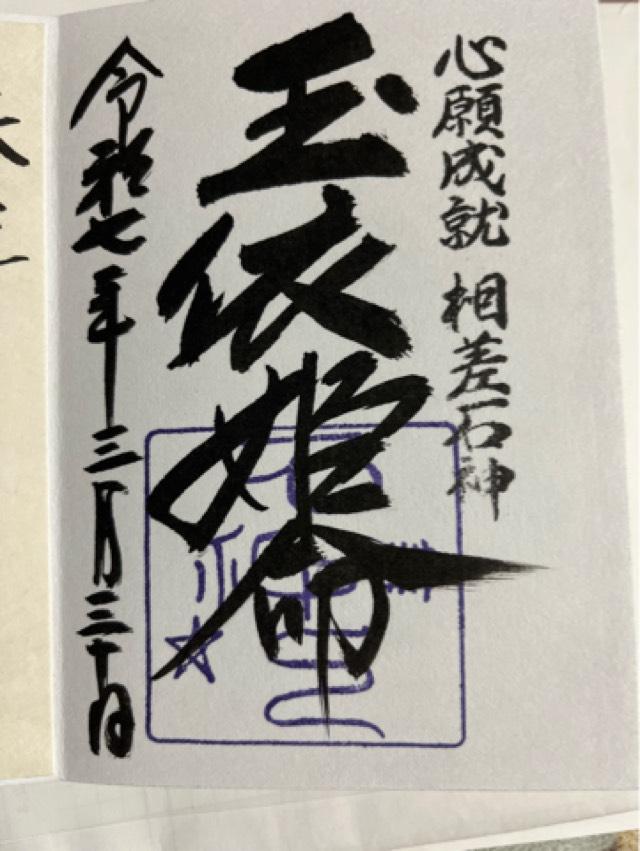 心願成就 相差石神
玉依姫命
令和七年三月三十日